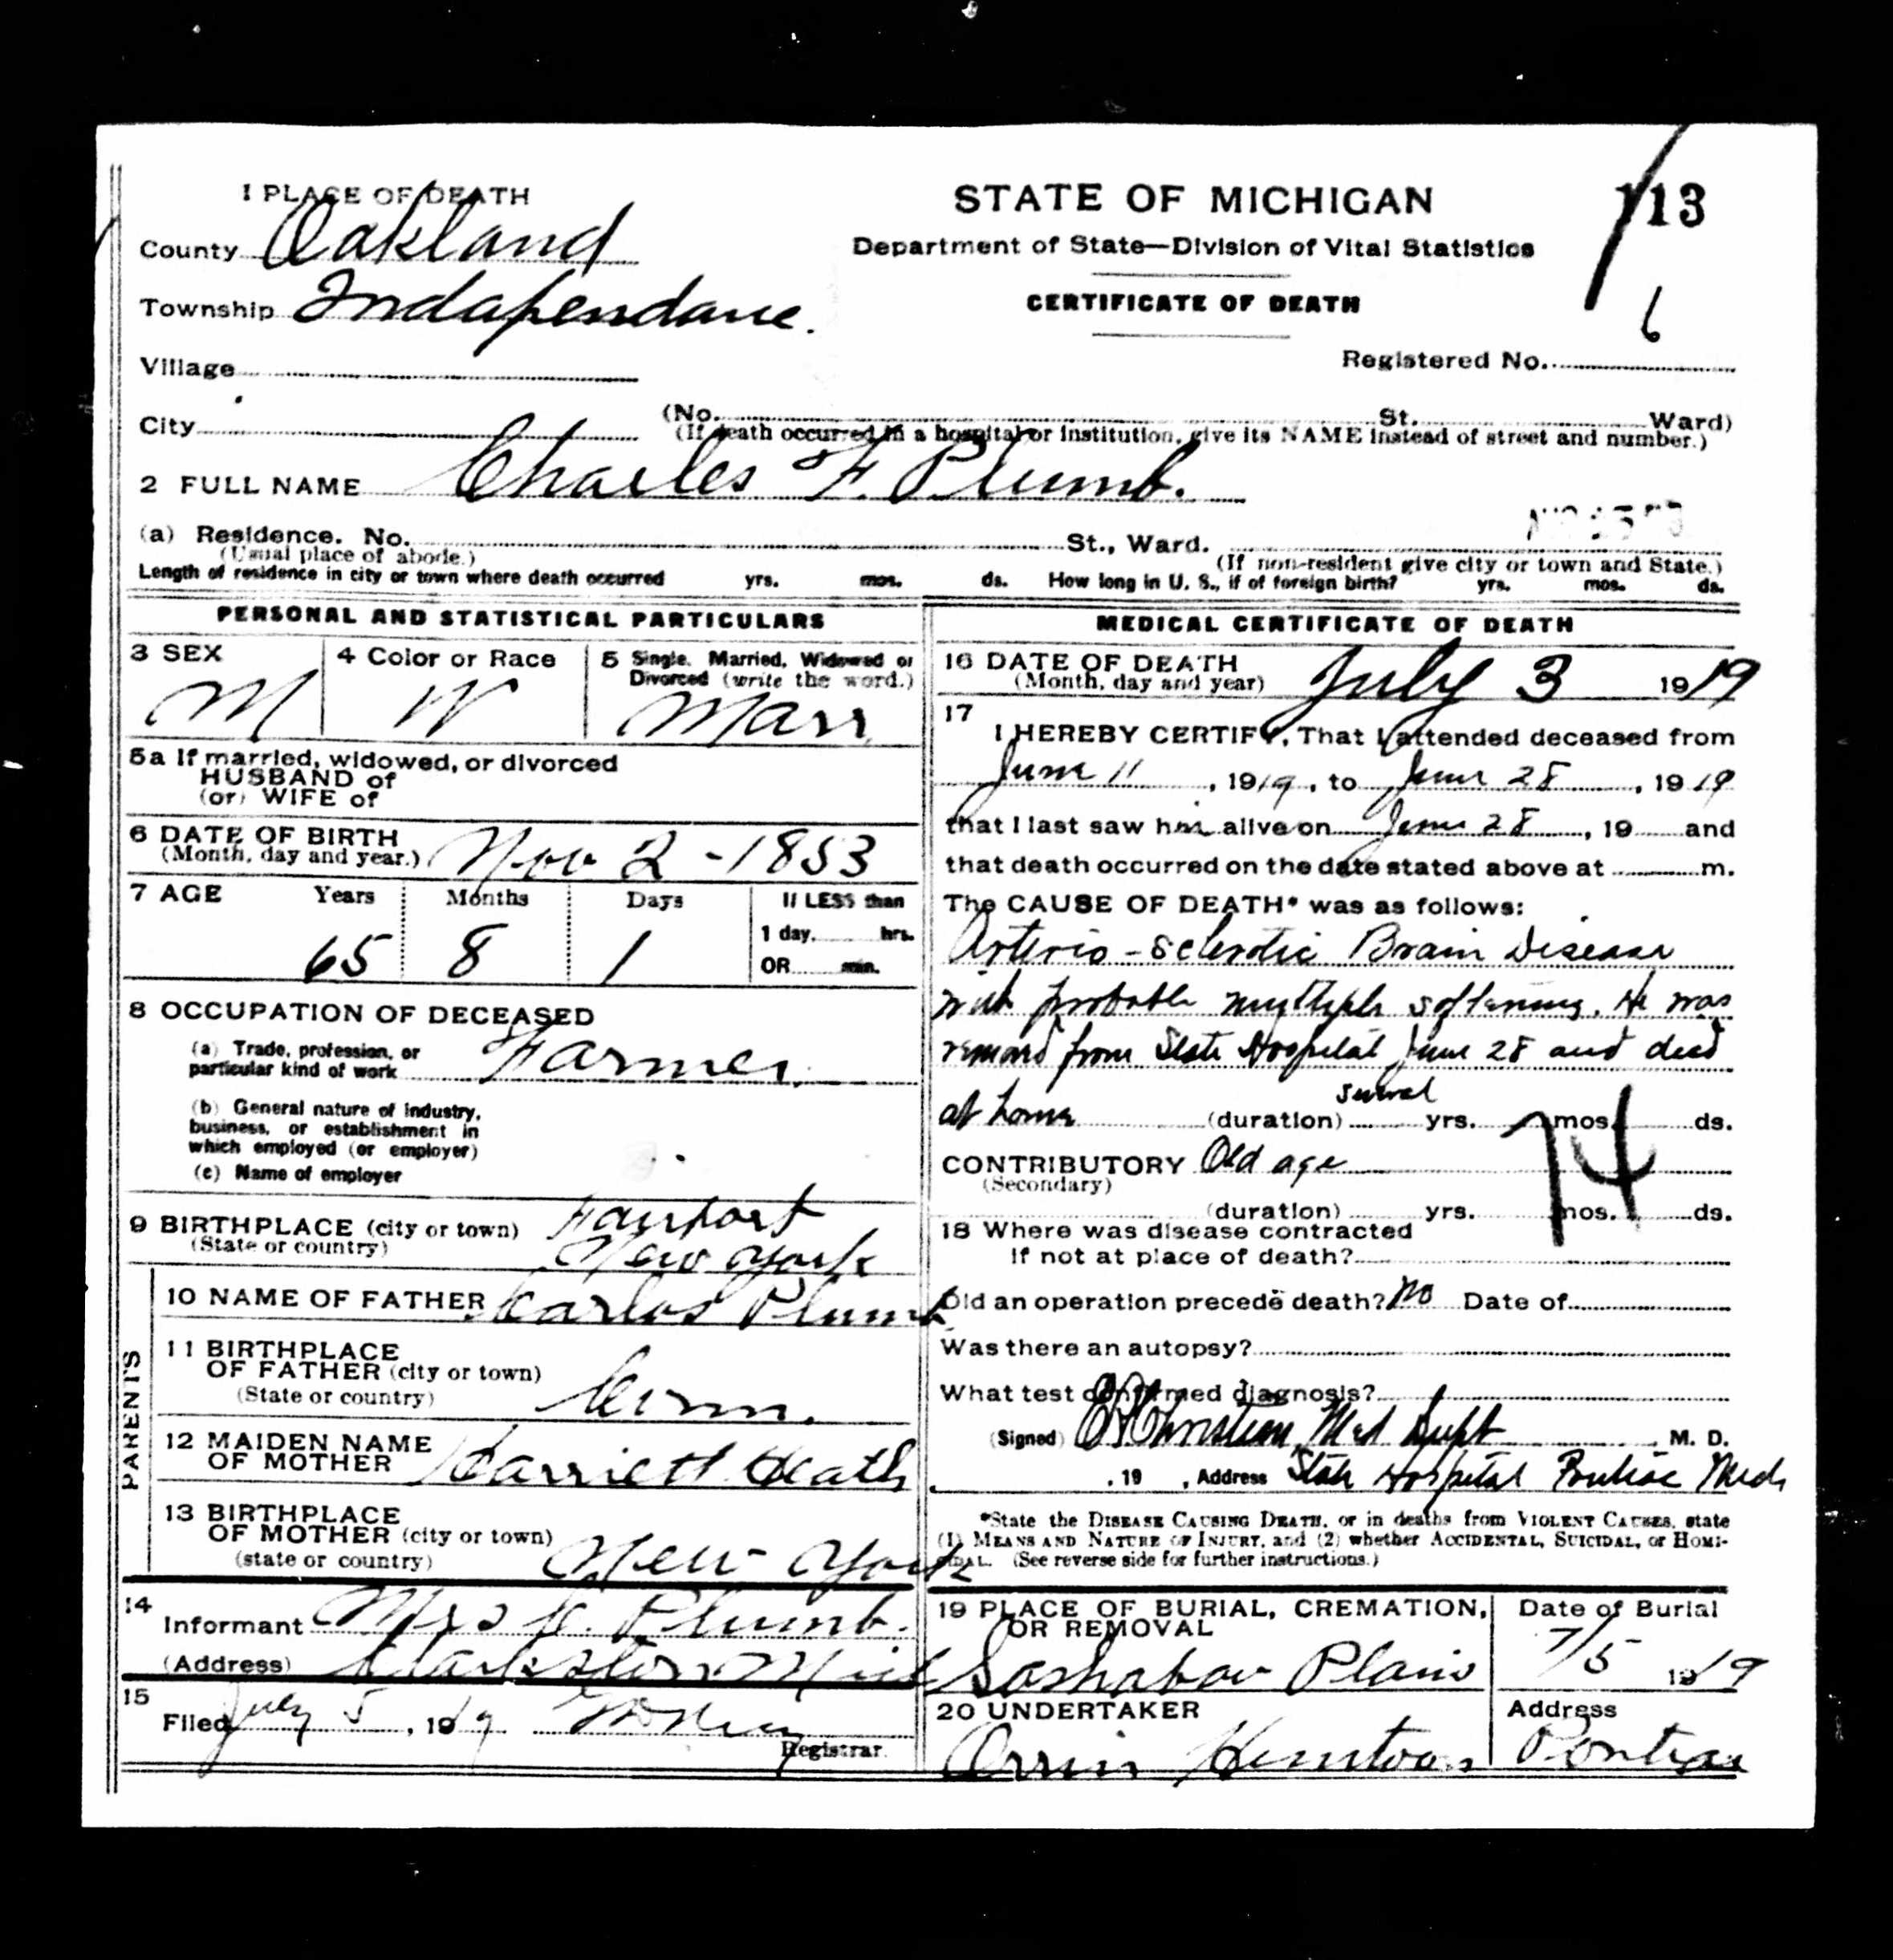 1 PLACE OF DEATH
County Oakland
Township Indapendance.
Village
City
STATE OF MICHIGAN
Department of State—Division of Vital Statistics
CERTIFICATE OF DEATH
113
6
Registered No.
(No. St. Ward)
(If death occurred in a hospital or institution, give its NAME instead of street and number.)
2 FULL NAME Charles F. Plumb.
(a) Residence. No. St., Ward.
(Usual place of abode.) (If non-resident give city or town and State.)
Length of residence in city or town where death occurred yrs. mos. ds. How long in U. S., if of foreign birth? yrs. mos. ds.
PERSONAL AND STATISTICAL PARTICULARS
3 SEX 4 Color or Race 5 Single, Married, Widowed or
Divorced (write the word.)
M W Marr
5a If married, widowed, or divorced
HUSBAND of
(or) WIFE of
6 DATE OF BIRTH
(Month, day and year.) Nov 2 - 1853
7 AGE Years Months Days If LESS than
1 day, hrs.
65 8 1 OR min.
8 OCCUPATION OF DECEASED
(a) Trade, profession, or
particular kind of work Farmer.
(b) General nature of industry,
business, or establishment in
which employed (or employer)
(c) Name of employer
9 BIRTHPLACE (city or town) Fairport
(State or country) New York
PARENTS
10 NAME OF FATHER Carlos Plumb
11 BIRTHPLACE
OF FATHER (city or town)
(State or country) Conn.
12 MAIDEN NAME
OF MOTHER Harriett Heath
13 BIRTHPLACE
OF MOTHER (city or town)
(state or country) New York
14
Informant Mrs C. Plumb.
(Address) Clarkston Mich
15
Filed July 5, 1919
Registrar
MEDICAL CERTIFICATE OF DEATH
16 DATE OF DEATH
(Month, day and year) July 3 1919
17
I HEREBY CERTIFY, That I attended deceased from
June 11, 1919, to June 28, 1919
that I last saw him alive on June 28, 19 and
that death occurred on the date stated above at m.
The CAUSE OF DEATH* was as follows:
Arterio-sclerotic Brain Disease
with probable multiple softening. He was
removed from State Hospital June 28 and died
at home (duration) several yrs. mos. ds.
74
CONTRIBUTORY Old age
(Secondary)
(duration) yrs. mos. ds.
18 Where was disease contracted
if not at place of death?
Did an operation precede death? No Date of
Was there an autopsy?
What test confirmed diagnosis?
(Signed) Christian, Med Supt M. D.
, 19 , Address State Hospital Pontiac Mich
*State the DISEASE CAUSING DEATH, or in deaths from VIOLENT CAUSES, state
(1) MEANS AND NATURE OF INJURY, and (2) whether ACCIDENTAL, SUICIDAL, or HOMI-
CIDAL. (See reverse side for further instructions.)
19 PLACE OF BURIAL, CREMATION, Date of Burial
OR REMOVAL
Sashabaw Plains 7/5 1919
20 UNDERTAKER Address
Orrin Pontiac